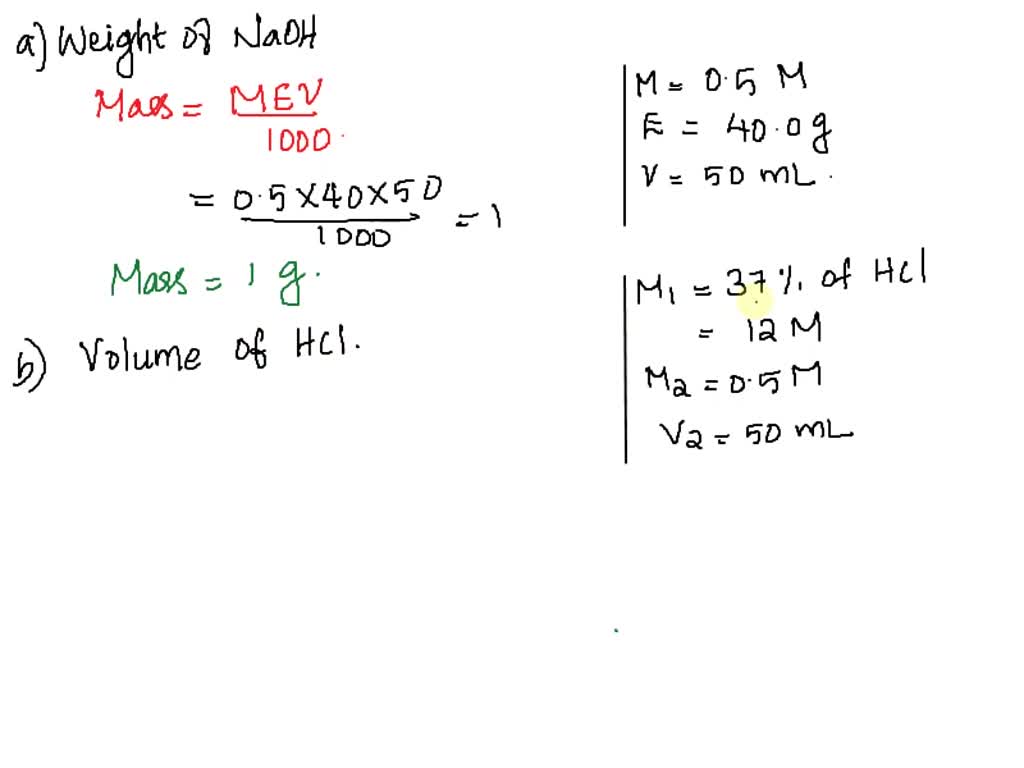 a) Weight of NaOH
Mass = MEV
1000.
= 0.5 X 40 X 50
1000
= 1
Mass = 1 g.
b) Volume of HCl.
M = 0.5 M
E = 40.0g
V = 50 mL.
M1 = 37% of HCl
= 12 M
M2 = 0.5 M
V2 = 50 mL